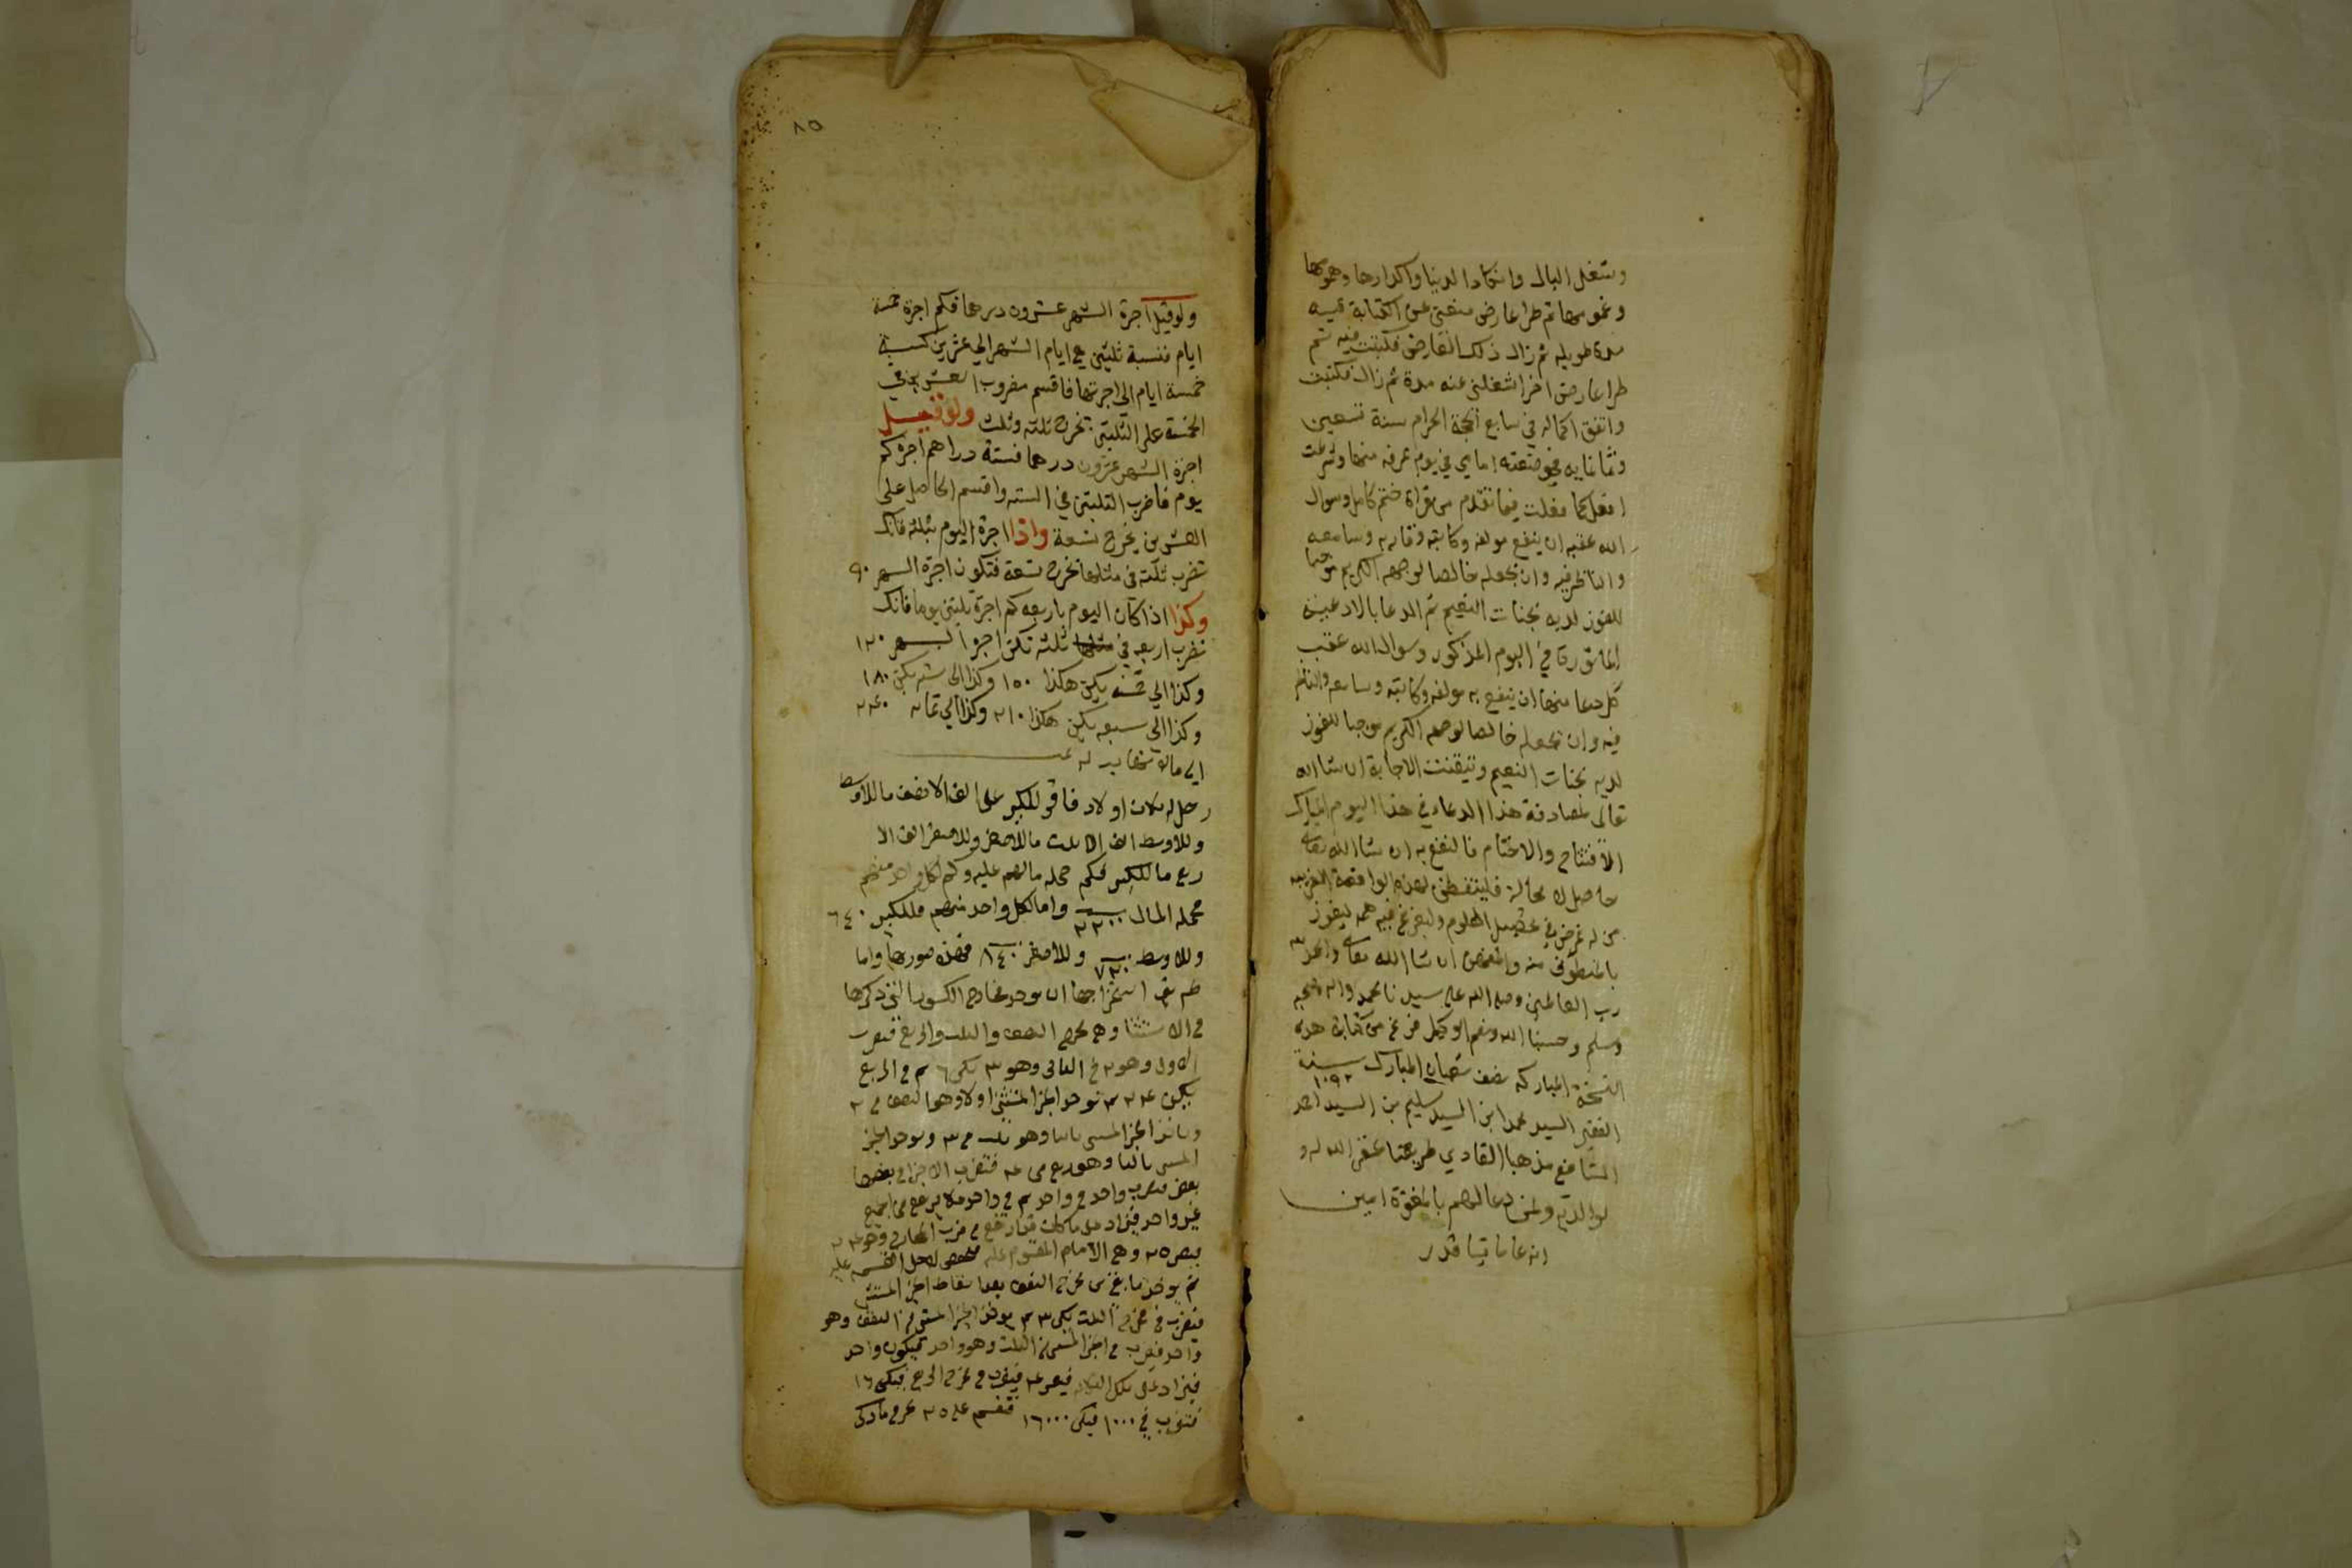 وشغل البال وانكاد الدنيا واكدارها وهمومها
وغمومها ثم طرا عارض منعني عن الكتابة فيه
مدة طويله ثم زال ذلك العارض فكتبت فيه ثم
طرا عارض اخر اشغلني عنه مدة ثم زال فكتبت
واتفق اكماله في سابع الحجة الحرام سنة تسعين
وثمانمايه في يوم عرفه منها وشرعت
افعل كما فعلت فيما تقدم من قراة ختم كامل وسوال
الله عقبه ان ينفع مولفه وكاتبه وقاريه وسامعه
والناظر فيه وان يجعله خالصا لوجهه الكريم موجبا
للفوز لديه بجنات النعيم ثم الدعا بالادعية
الماثورة في اليوم المذكور وسوال الله عقب
كل دعا منها ان ينفع به مولفه وكاتبه وسامعه والناظر
فيه وان يجعله خالصا لوجهه الكريم موجبا للفوز
لديه بجنات النعيم وتيقنت الاجابة ان شا الله
تعالى لمصادفة هذا الدعاء في هذا اليوم المبارك
الافتتاح والاختتام فالنفع به ان شا الله تعالى
حاصل لا محالة فليتفطن لهذه الواقعة الغريبه
من له غرض في تحصيل العلوم وليفرغ فيه همه ليفوز
بالمنطوق منه والمفهوم ان شا الله تعالى والحمد لله
رب العالمين وصلى الله على سيدنا محمد واله وصحبه
وسلم وحسبنا الله ونعم الوكيل فرغ من كتابة هذه
النسخة المباركه نصف شعبان المبارك سنة ١٠٩٢
الفقير السيد محمد ابن السيد سليم بن السيد احمد
الشافعي مذهبا القادري طريقتا غفر الله له و
لوالديه ولمن دعا لهم بالمغفرة امين
انه على ما يشا قدير
٨٥
ولو قيل اجرة الشهر عشرون درهما فكم اجرة خمسة
ايام فنسبة ثلثين هي ايام الشهر الي عشرين كنسبة
خمسة ايام الى اجرتها فاقسم مضروب العشرين في
الخمسة على الثلثين تخرج ثلثه وثلث ولو قيل
اجرة الشهر عشرون درهما فستة دراهم اجرة كم
يوم فاضرب الثلثين في السته واقسم الحاصل على
العشرين يخرج تسعة واذا اجرة اليوم بثلثه فانك
تضرب ثلثه في مثلها تخرج تسعة فتكون اجرة الشهر ٩٠
وكذا اذا كان اليوم باربعه كم اجرة ثلثين يوما فانك
تضرب اربعه في ثلثه تكن اجرة الشهر ١٢٠
وكذا الي خمسه يكن هكذا ١٥٠ وكذا الى سته يكن ١٨٠
وكذا الي سبعه يكن هكذا ٢١٠ وكذا الي ثمانيه ٢٤٠
الى مالا نهاية له
رجل له ثلاث اولاد فاقر للكبير على الف الا نصف ما للاوسط
وللاوسط الف الا ثلث ما للاصغر وللاصغر الف الا
ربع ما للكبير فكم جملة مالهم عليه وكم لكل واحد منهم
جملة المال ٢٢٠٠ واما لكل واحد منهم فللكبير ٦٤٠
وللاوسط ٧٢٠ وللاصغر ٨٤٠ فهذه صورتها واما
طريق استخراجها ان توخذ مخارج الكسور التي ذكرها
في الاستثنا وهي مخرج النصف والثلث والربع فتضرب
الاول وهو ٢ في الثاني وهو ٣ يكن ٦ ثم في الربع
يكن ٢٤ ثم توخذ الجز المستثنى اولا وهو النصف من ٢
وتاخذ الجز المستثنى ثانيا وهو ثلث من ٣ وتوخذ الجز
المستثنى ثالثا وهو ربع من ٤ فتضرب الاجزا في بعضها
بعض فتضرب واحد في واحد ثم في واحد فلا يرتفع من الجميع
غير واحد فيزاد على ما كان قد ارتفع من ضرب المخارج وهو ٢٤
يصير ٢٥ وهي الامام المقسوم عليه
ثم يوخذ ما بقي من مخرج النصف بعد اسقاط الجز المستثنى
فيضرب في مخرج الثلث يكن ٣ ثم يوخذ الجز المستثنى من النصف وهو
واحد فيضرب في الجز المستثنى من الثلث وهو واحد فيكون واحد
فيزاد على تلك الثلاثة فيصير ٤ فيضرب في مخرج الربع فيكن ١٦
فتضرب في ١٠٠٠ فيكن ١٦٠٠٠ فتقسم على ٢٥ يخرج ما ذكر